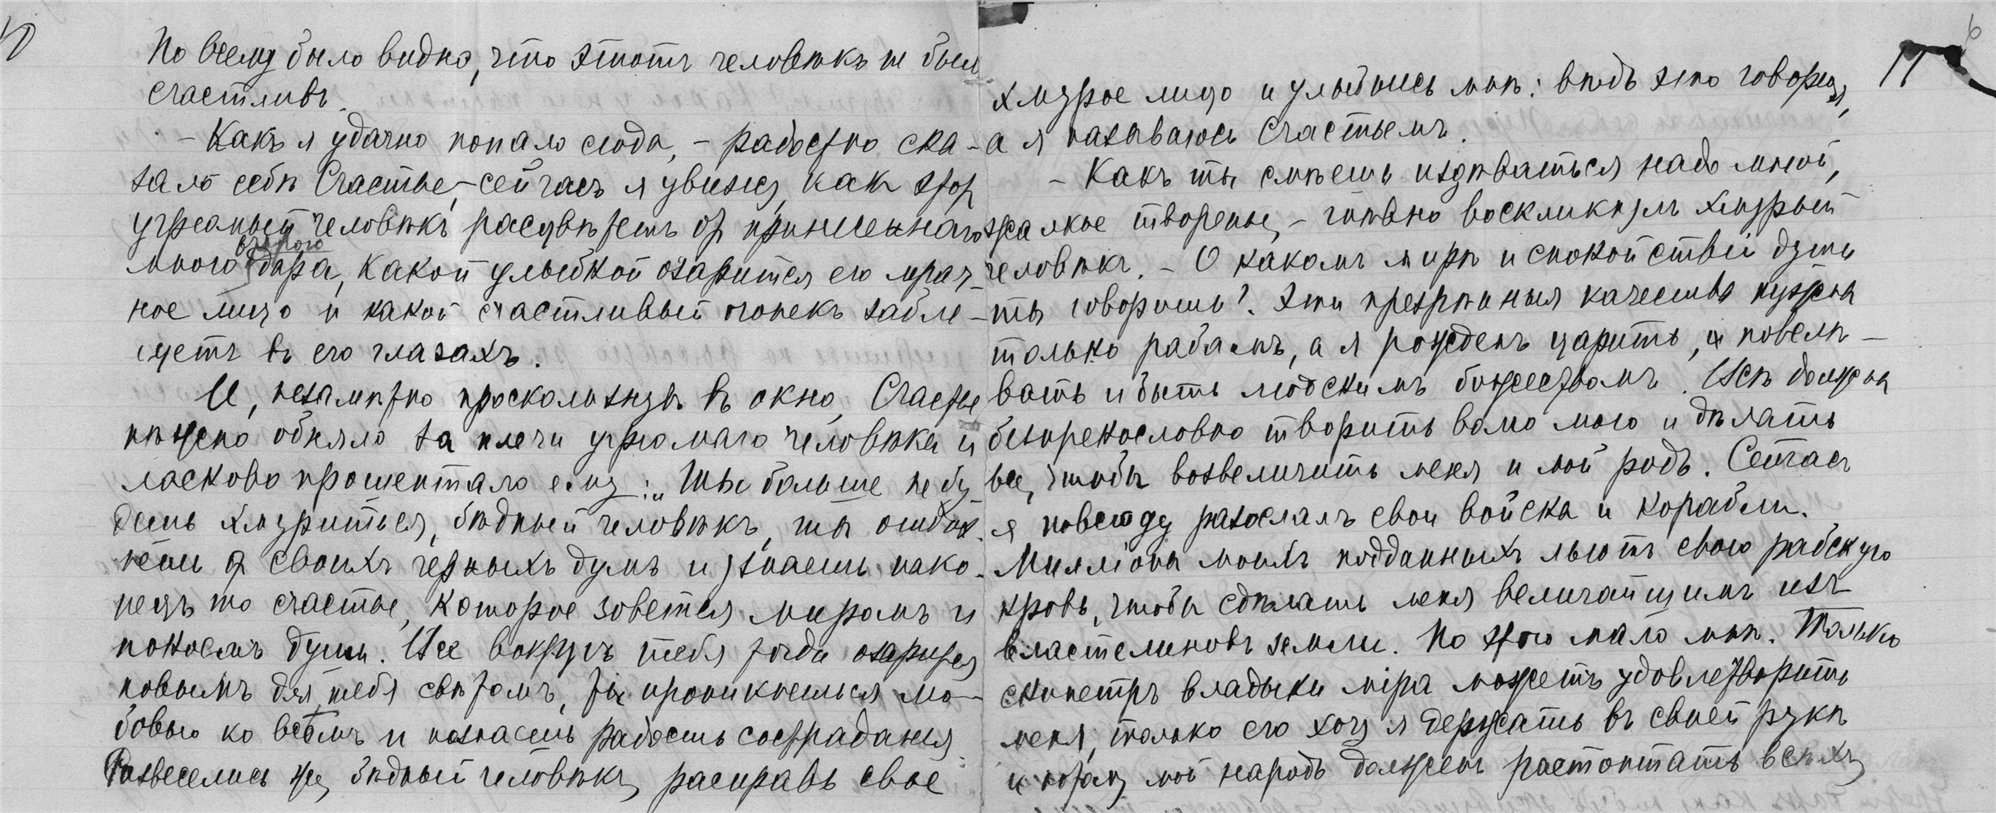 По всему было видно, что этотъ человѣкъ не былъ
счастливъ.
– Какъ я удачно попало сюда, – радостно ска-
зало себѣ Счастье, – сейчасъ я увижу, как этот
угрюмый человѣкъ расцвѣтетъ от принесеннаго
мною дара, какой улыбкой озарится его мрач-
ное лицо и какой счастливый огонекъ забле-
щетъ въ его глазахъ.
И, незамѣтно проскользнувъ въ окно, Счастье
нѣжно обняло за плечи угрюмаго человѣка и
ласково прошептало ему: „Ты больше не бу-
дешь хмуриться, бѣдный человѣкъ, ты
от своихъ черныхъ думъ и узнаешь нако-
нецъ то счастье, которое зовется миромъ и
покоемъ души. Все вокругъ тебя тогда озарится
новымъ для тебя свѣтомъ, ты проникнешься лю-
бовью ко всѣмъ и познаешь радость состраданья.
Развеселись же, бѣдный человѣкъ, расправь свое
17
хмурое лицо и улыбнись мнѣ: вѣдь это говорю я,
а я называюсь Счастьемъ.
– Какъ ты смѣешь издѣваться надо мной,
жалкое творенье, – гнѣвно воскликнулъ хмурый
человѣкъ. – О какомъ мирѣ и спокойствіи души
ты говоришь? Эти презрѣнныя качества нужны
только рабамъ, а я рожденъ царить, и повелѣ-
вать и быть людскимъ божествомъ. Всѣ должны
безпрекословно творить волю мою и дѣлать
все, чтобы возвеличить меня и мой родъ. Сейчас
я повсюду разослалъ свои войска и корабли.
Милліоны моихъ подданныхъ льютъ свою рабскую
кровь, чтобы сдѣлать меня величайшимъ изъ
властелиновъ земли. Но этого мало мнѣ. Только
скипетръ владыки міра можетъ удовлетворить
меня, только его хочу я держать въ своей рукѣ
и потому мой народъ долженъ растоптать всѣхъ,